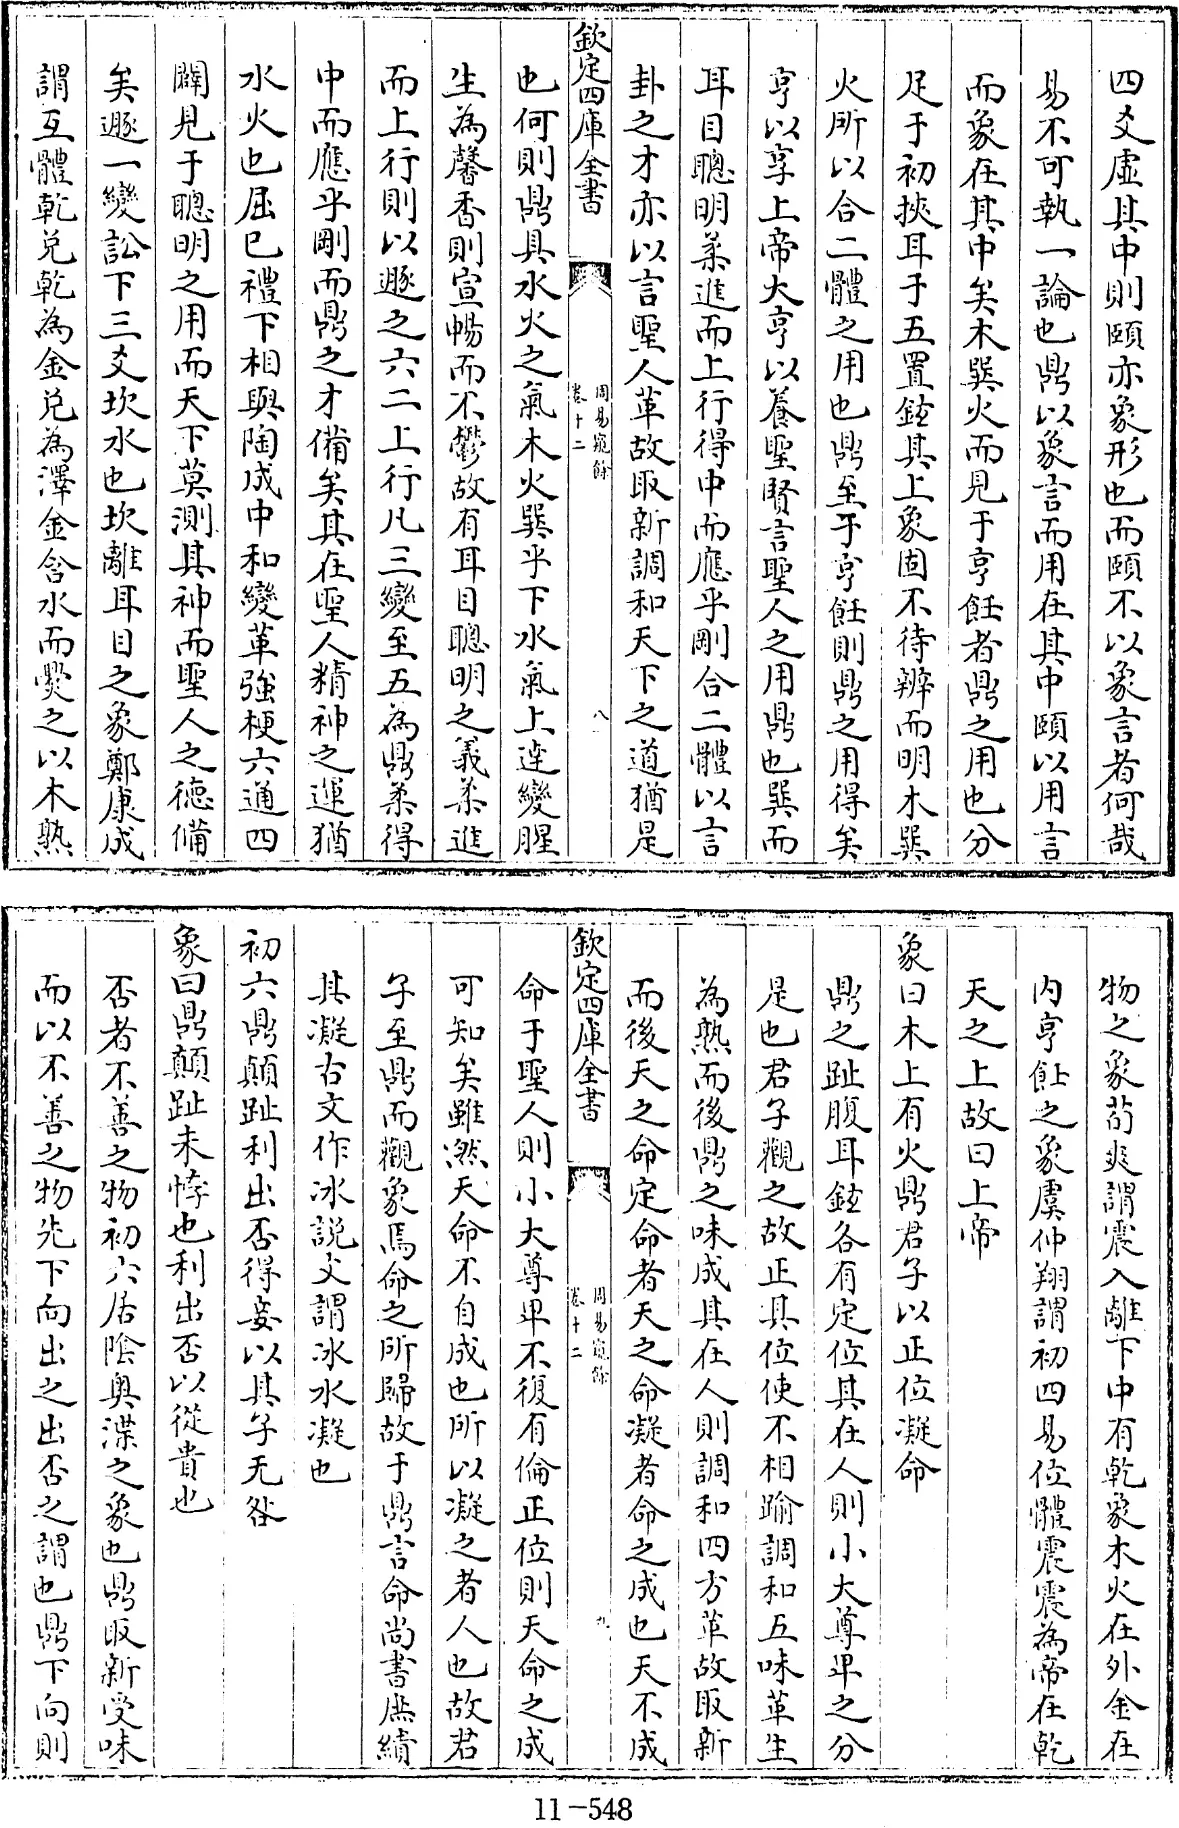 四爻虛其中則頤亦象形也而頤不以象言者何哉
易不可執一論也鼎以象言而用在其中頤以用言
而象在其中矣木巽火而見于亨飪者鼎之用也分
足于初挾耳于五置鉉其上象固不待辨而明木巽
火所以合二體之用也鼎至于亨飪則鼎之用得矣
亨以享上帝大亨以養聖賢言聖人之用鼎也巽而
耳目聰明柔進而上行得中而應乎剛合二體以言
卦之才亦以言聖人革故取新調和天下之道猶是
欽定四庫全書
周易窺餘
卷十二
八
也何則鼎具水火之氣木火巽乎下水氣上達變腥
生為馨香則宣暢而不鬱故有耳目聰明之義柔進
而上行則以遯之六二上行凡三變至五為鼎柔得
中而應乎剛而鼎之才備矣其在聖人精神之運猶
水火也屈已禮下相與陶成中和變革強梗六通四
闢見于聰明之用而天下莫測其神而聖人之德備
矣遯一變訟下三爻坎水也坎離耳目之象鄭康成
謂互體乾兌乾為金兌為澤金含水而爨之以木熟
物之象荀爽謂震入離下中有乾象木火在外金在
内亨飪之象虞仲翔謂初四易位體震震為帝在乾
天之上故曰上帝
象曰木上有火鼎君子以正位凝命
鼎之趾腹耳鉉各有定位其在人則小大尊卑之分
是也君子觀之故正其位使不相踰調和五味革生
為熟而後鼎之味成其在人則調和四方革故取新
而後天之命定命者天之命凝者命之成也天不成
欽定四庫全書
周易窺餘
卷十二
九
命于聖人則小大尊卑不復有倫正位則天命之成
可知矣雖然天命不自成也所以凝之者人也故君
子至鼎而觀象焉命之所歸故于鼎言命尚書庶績
其凝古文作冰說文謂冰水凝也
初六鼎顛趾利出否得妾以其子无咎
象曰鼎顛趾未悖也利出否以從貴也
否者不善之物初六居陰奥渫之象也鼎取新受味
而以不善之物先下向出之出否之謂也鼎下向則
11-548